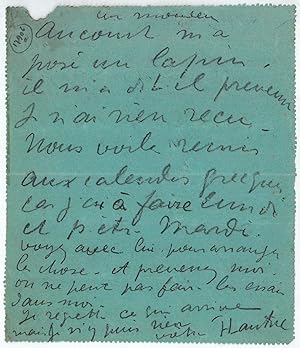 un monsieur
Aucourt m'a
posé un lapin.
il m'a dit il prevenu
Je n'ai rien recu
Nous voila remis
aux calendes grecques
car j'ai à faire Lundi
et p.etr. Mardi.
voyez avec lui pour arranger
la chose. et prevenez moi.
on ne peut pas faire les essais
sans moi.
Je regrette ce qui arrive
mais je n'y puis rien
votre HLautrec